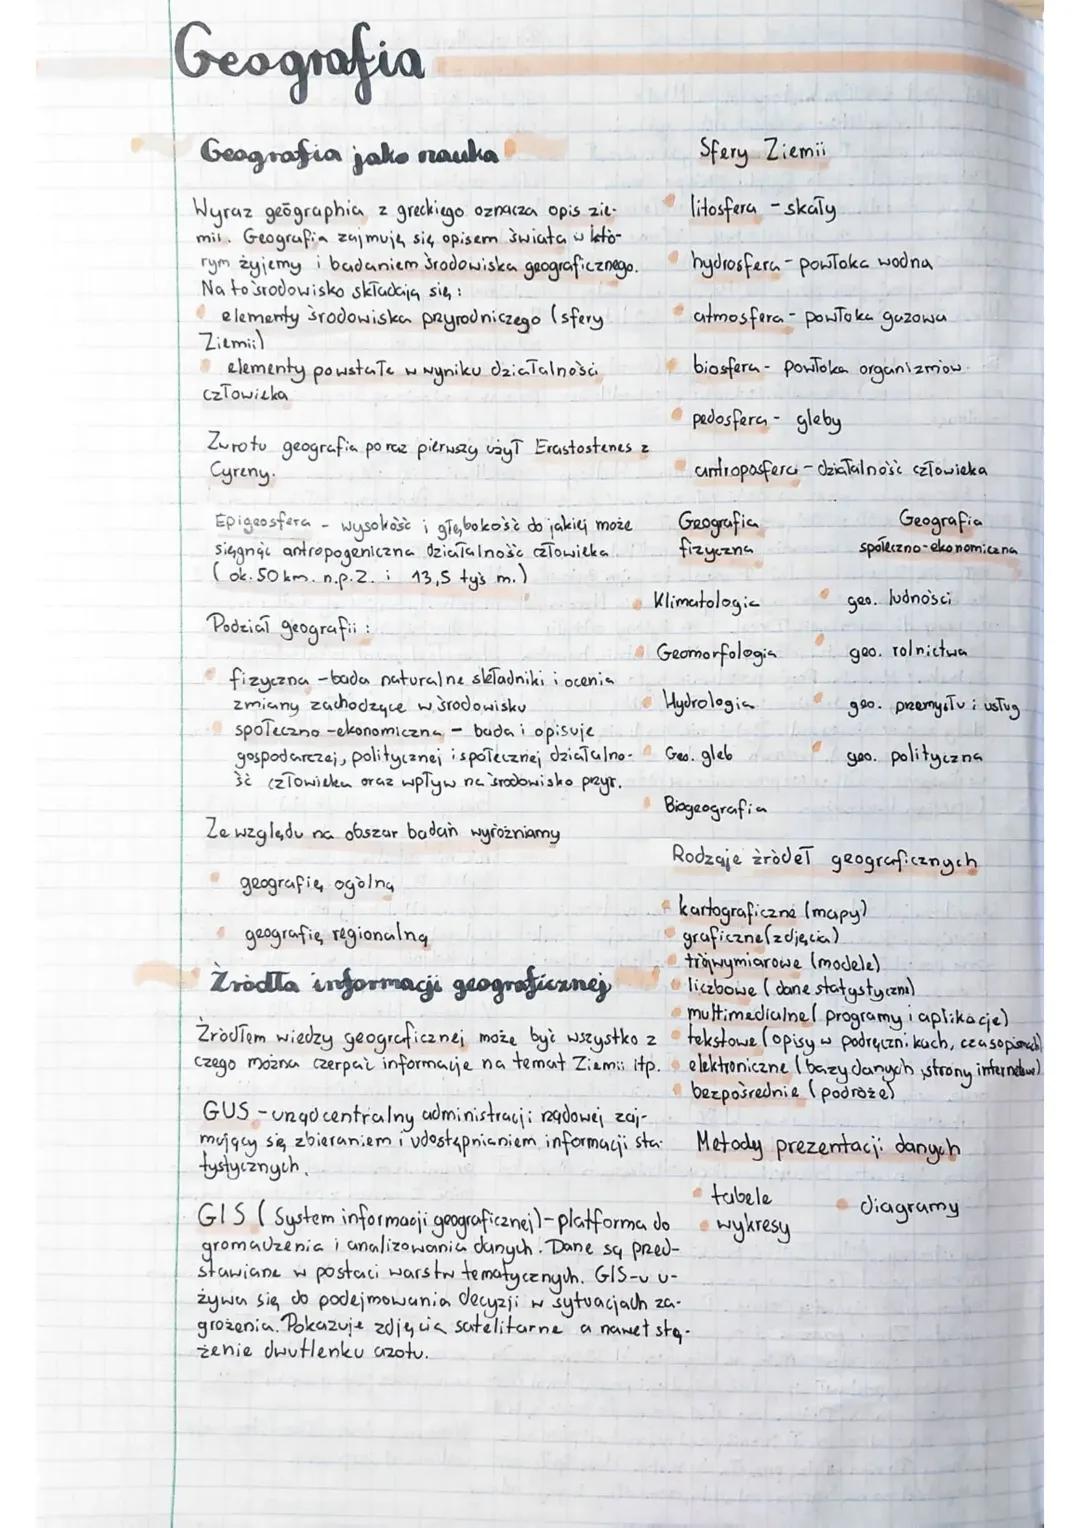 Geografia
Geografia jako nauka
Wyraz geōgraphia z greckiego oznacza opis zie-
mii. Geografia zajmują się opisem świata w któ-
rym żyjemy i badaniem środowiska geograficznego.
Na to środowisko składają się:
elementy środowiska przyrodniczego (sfery
Ziemii)
elementy powstałe w wyniku działalności
człowieka
Zwrotu geografia po raz pierwszy użył Erastostenes z
Cyreny.
Epigeosfera - wysokość i głębokość do jakiej może
sięgnąć antropogeniczna działalność człowieka
(ok. 50 km. n.p.Z. i 13,5 tyś m.)
Podział geografii:
fizyczna - bada naturalne składniki i ocenia
zmiany zachodzące w środowisku
społeczno-ekonomiczna - bada i opisuje
gospodarczej, politycznej i społecznej działalno-
ść człowieka oraz wpływ na środowisko przyr.
Ze względu na obszar badań wyróżniamy
geografię ogólną
geografię regionalną
Żródła informacji geograficznej
Żródłem wiedzy geograficznej może być wszystko z
czego można czerpać informacje na temat Ziemii itp.
GUS - urząd centralny administracji rządowej zaj-
mujący się zbieraniem i udostępnianiem informacji sta-
tystycznych.
GIS (System informacji geograficznej) - platforma do
gromadzenia i analizowania danych. Dane są przed-
stawiane w postaci warstw tematycznych. GIS-u u-
żywa się do podejmowania decyzji w sytuacjach za-
grożenia. Pokazuje zdjęcia satelitarne a nawet stę-
żenie dwutlenku azotu.
Sfery Ziemii
litosfera - skały
hydrosfera - powłoka wodna
atmosfera - powłoka gazowa
biosfera - powłoka organizmów
pedosfera - gleby
antroposfera - działalność człowieka
Geografia
fizyczna
Klimatologia
Geomorfologia
Hydrologia
Geo. gleb
Biogeografia
Geografia
społeczno-ekonomiczna
geo. ludności
geo. rolnictwa
geo. przemysłu i usług
geo. polityczna
Rodzaje żródeł geograficznych
kartograficzne (mapy)
graficzne (zdjęcia)
trójwymiarowe (modele)
liczbowe (dane statystyczne)
multimedialne (programy i aplikacje)
tekstowe (opisy w podręcznikach, czasopismach)
elektroniczne (bazy danych, strony internetowe)
bezpośrednie (podróże)
Metody prezentacji danych
tabele
wykresy
diagramy